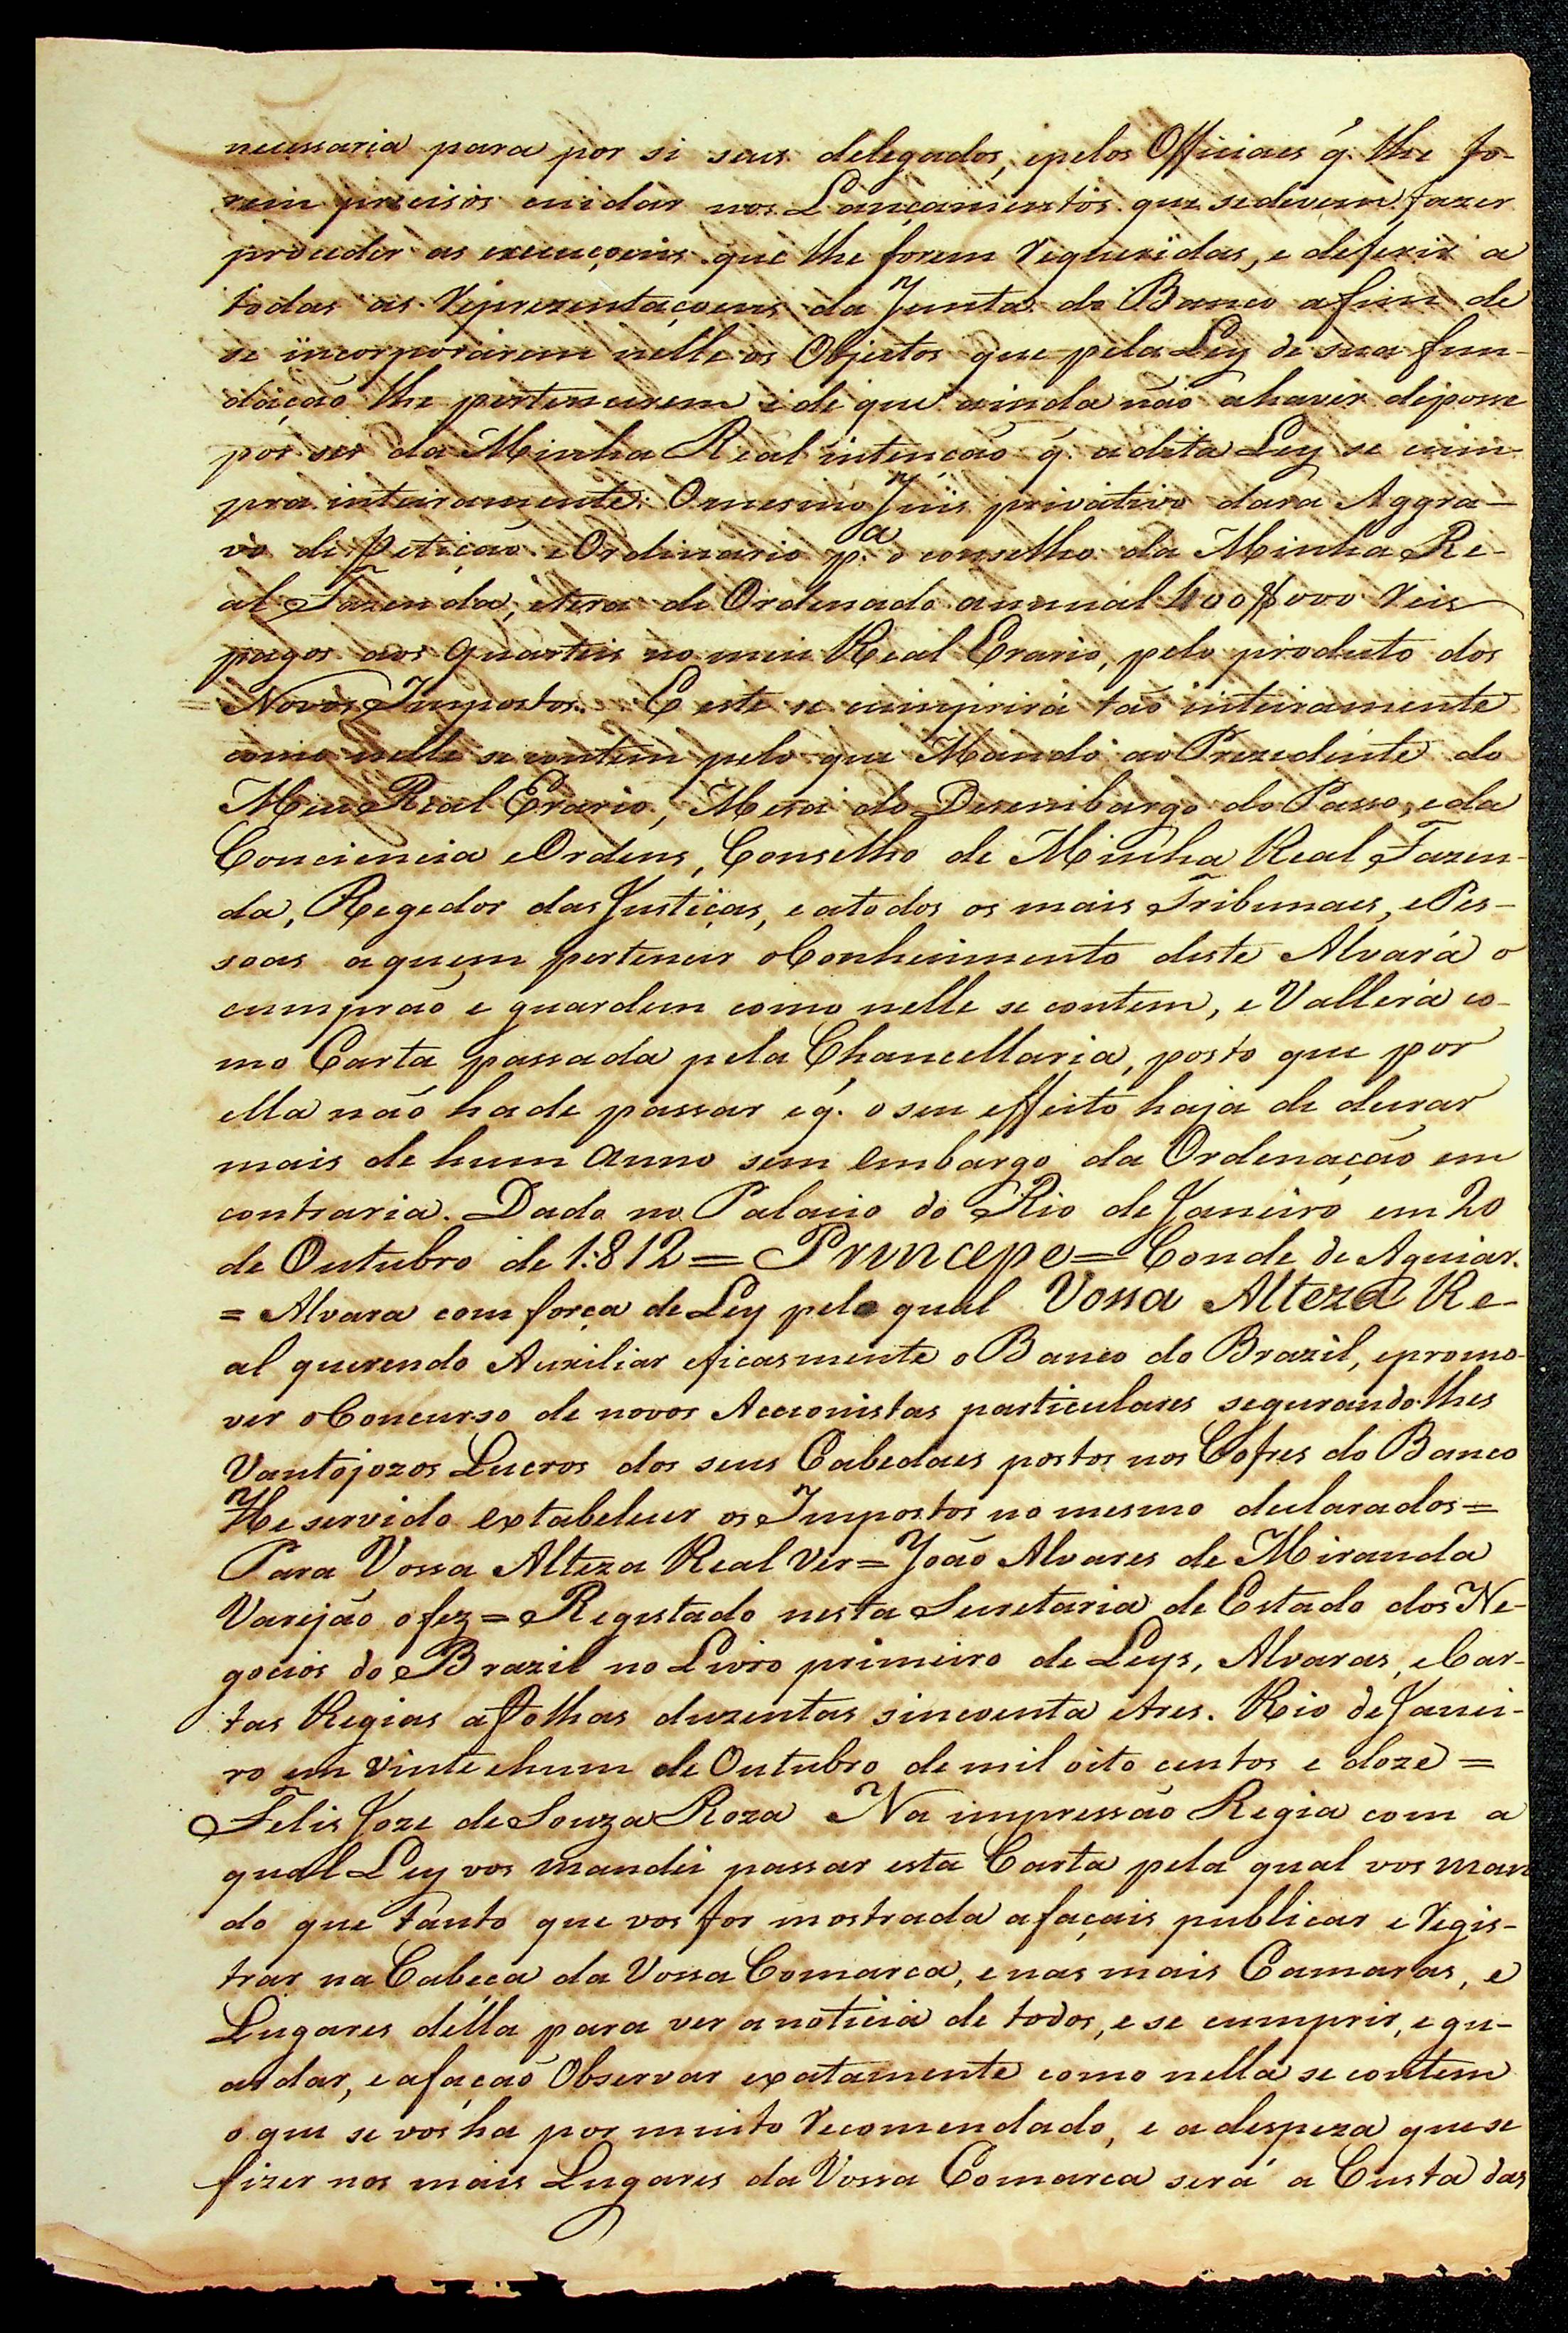 necessaria para por si seus delegados, epelos Officiaes q̃. lhe fo-
rem precisos cuidar nos Lançamentos que sedevem fazer
proceder as execuçoens que lhe forem requeridas, e deferir a
todas as reprezentaçoens da Junta do Banco afim de
se incorporarem nelle os Objectos que pela Ley de sua fun-
dação lhe pertencerem e de que ainda não ahaver
por ser da Minha Real intencão q̃. adita Ley se cum-
pra inteiramente: Omesmo Juis privativo dara Aggra-
vo de Petição eOrdinario p.ª o conselho da Minha Re-
al Fazenda, etera de Ordenado annual 400$000 reis
pagos aos quarteis no meu Real Erario, pelo producto dos
= Novos Impostos. E este se cumprirá tão inteiramente
como nelle se contem pelo que Mando ao Prezedente do
Meu Real Erario, Mesa do Dezembargo do Passo, eda
Conciencia eOrdens, Conselho de Minha Real Fazen-
da, Regedor das Justiças, eatodos os mais Tribunaes, ePes-
soas aquem pertencer oConhecimento deste Alvará o
cumprão e guardem como nelle se contem, e Vallerá co-
mo Carta passada pela Chancellaria, posto que por
ella não hade passar eq̃. o seu effeito haja de durar
mais de hum anno sem embargo da Ordenação em
contraria. Dado no Palacio do Rio de Janeiro em 20
de Outubro de 1:812 = Princepe = Conde de Aguiar.
= Alvara com força de Ley pelo qual Vossa Alteza Re-
al querendo Auxiliar eficasmente o Banco do Brazil, epromo-
ver oConcurso de novos Accionistas particulares segurandolhes
Vantojozos Lucros dos seus Cabedaes postos nos Cofres do Banco
He servido extabelecer os Impostos no mesmo declarados =
Para Vossa Alteza Real Ver = João Alvares de Miranda
Varejão ofez = Registado nesta Secretaria de Estado dos Ne-
gocios do Brazil no Livro primeiro de Leys, Alvaras, eCar-
tas Regias afolhas duzentas sincoenta etres. Rio de Janei-
ro em vinte ehum de Outubro demil oito centos e doze =
Felis Joze de Souza Roza Na impressão Regia com a
qual Ley vos mandei passar esta Carta pela qual vos man
do que tanto que vos for mostrada afaçais publicar e regis-
trar na Cabeça da Vossa Comarca, enas mais Camaras, e
Lugares della para ver anoticia de todos, e se cumprir, egu-
ardar, eafação Observar exatamente como nella se contem
o que se vos ha por muito recomendado, e adespeza quese
fizer nos mais Lugares da Vossa Comarca será a Custa das